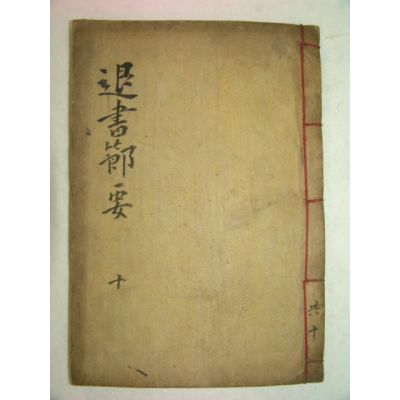 退書節要
十
共十